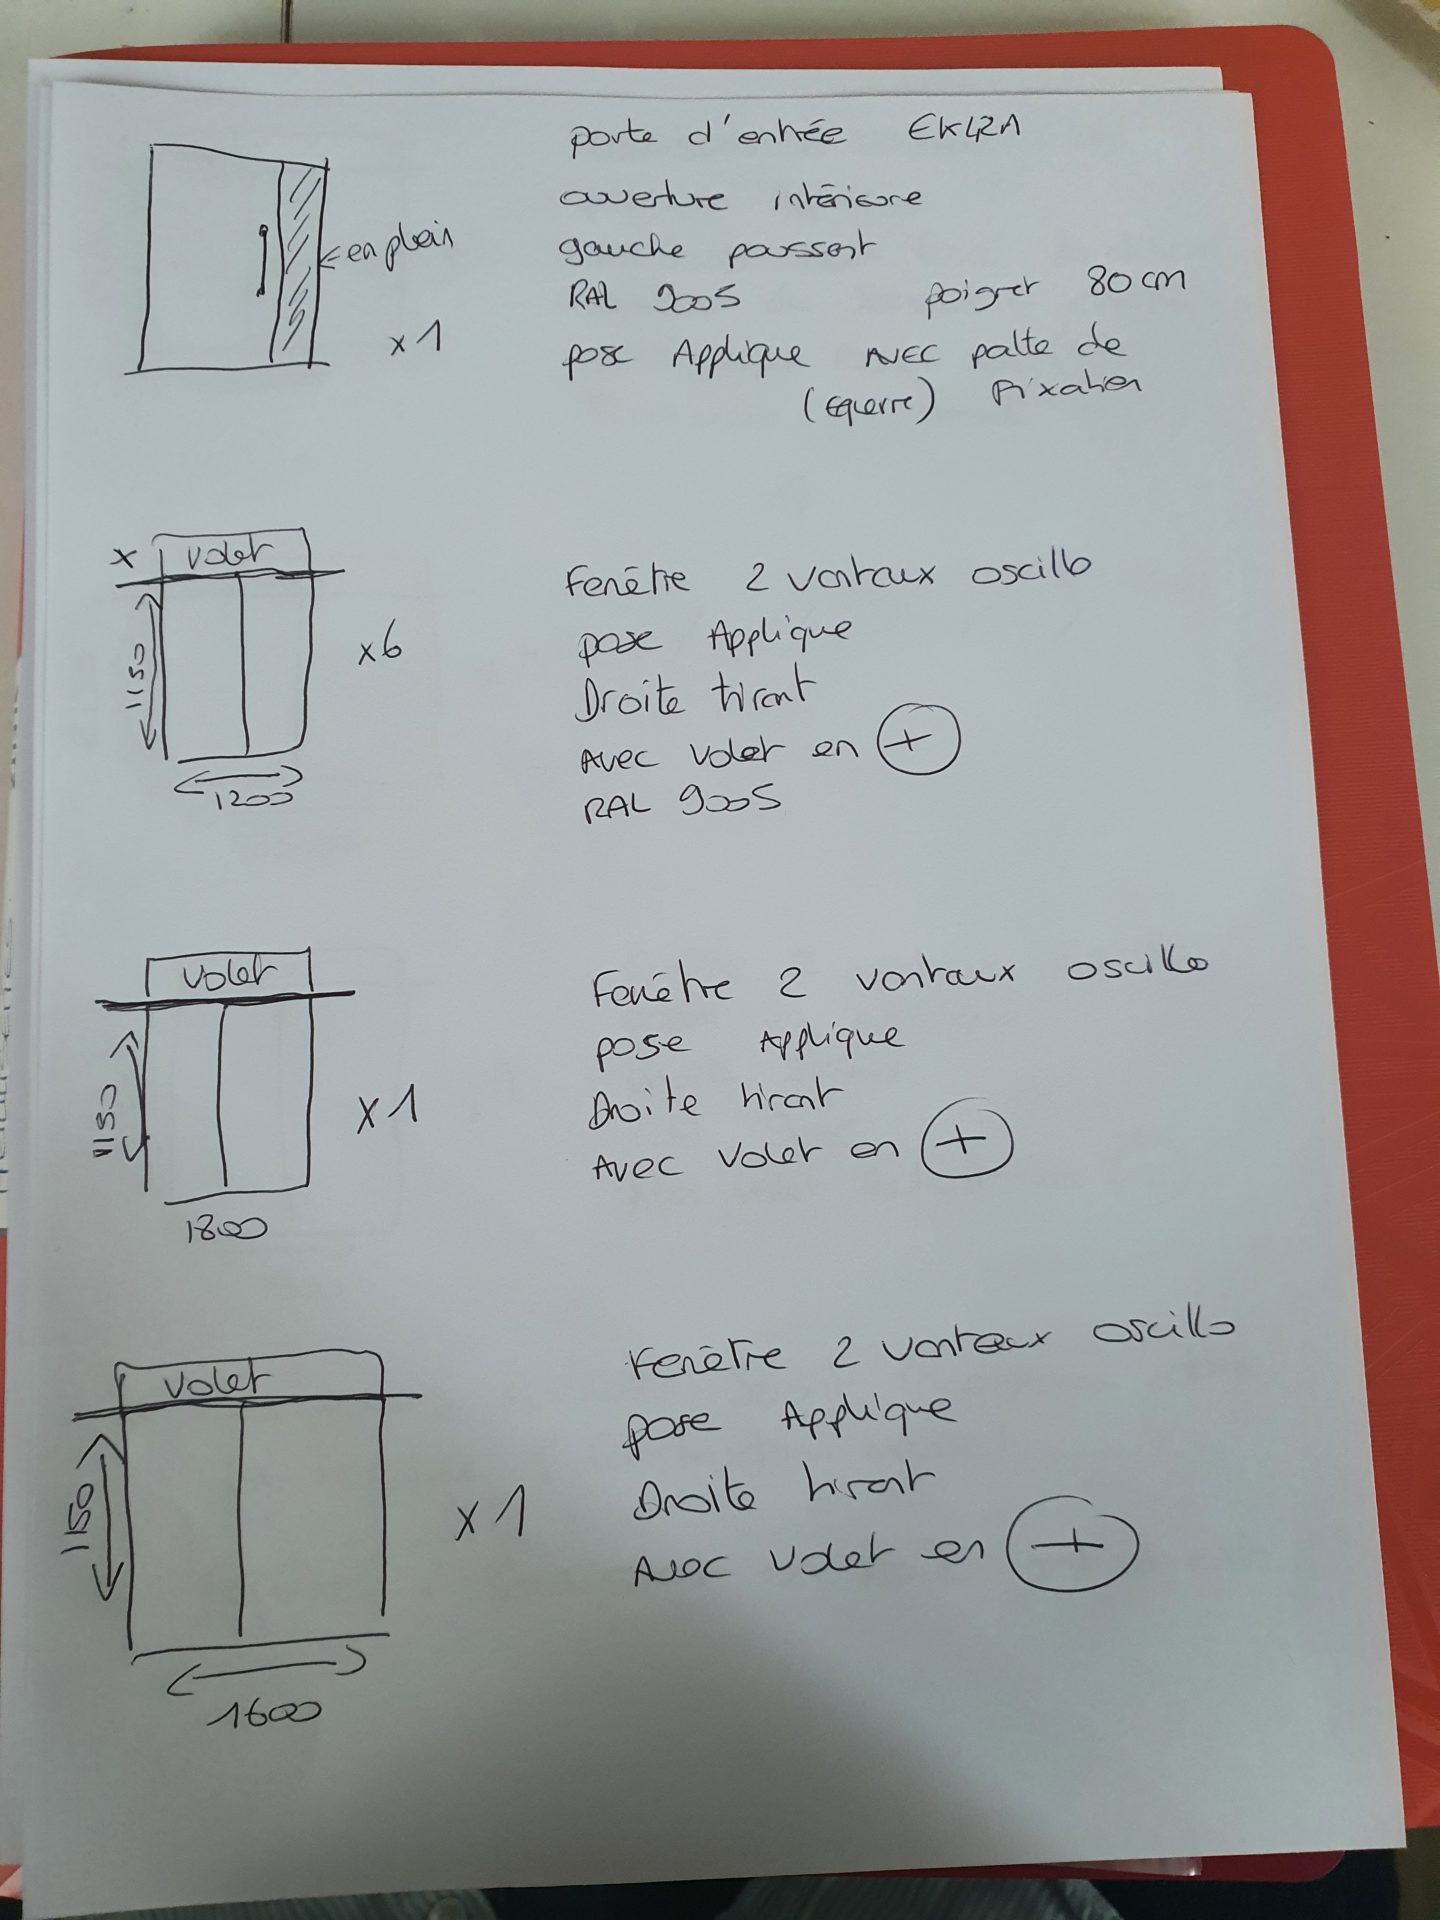 porte d'entrée EK42A
ouverture intérieure
gauche poussant
RAL 9005 poigner 80 cm
pose Applique AVEC patte de
(equerre) fixation
← en plein
x 1
x volet
1150
1200
x 6
Fenêtre 2 vantaux oscillo
pose Applique
Droite tirant
Avec volet en +
RAL 9005
volet
1150
1800
x 1
Fenêtre 2 vantaux oscillo
pose Applique
Droite tirant
Avec volet en +
volet
1150
1600
x 1
Fenêtre 2 vantaux oscillo
pose Applique
Droite tirant
Avec volet en +